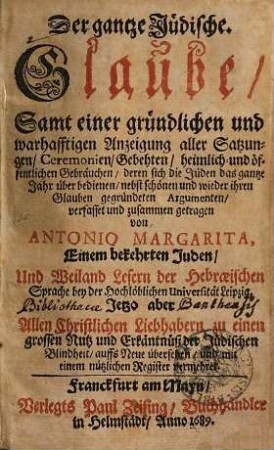 Der gantze Jüdische.
Glaube/
Samt einer gründlichen und
warhafftigen Anzeigung aller Satzun-
gen/ Ceremonien/ Gebehten/ heimlich und öf-
fentlichen Gebräuchen/ deren sich die Juden das gantze
Jahr über bedienen/ nebst schönen und wieder ihren
Glauben gegründeten Argumenten/
verfasset und zusammen getragen
von
ANTONIO MARGARITA,
Einem bekehrten Juden/
Und Weiland Lesern der Hebræischen
Sprache bey der Hochlöblichen Universität Leipzig
Bibliotheca Jetzo aber
Allen Christlichen Liebhabern zu einen
grossen Nutz und Erkäntnüß der Jüdischen
Blindheit/ auffs Neue übersehen/ und mit
einem nützlichen Register vermehret.
Franckfurt am Mayn/
Verlegts Paul Zeising/ Buchhändler
in Helmstädt/ Anno 1689.